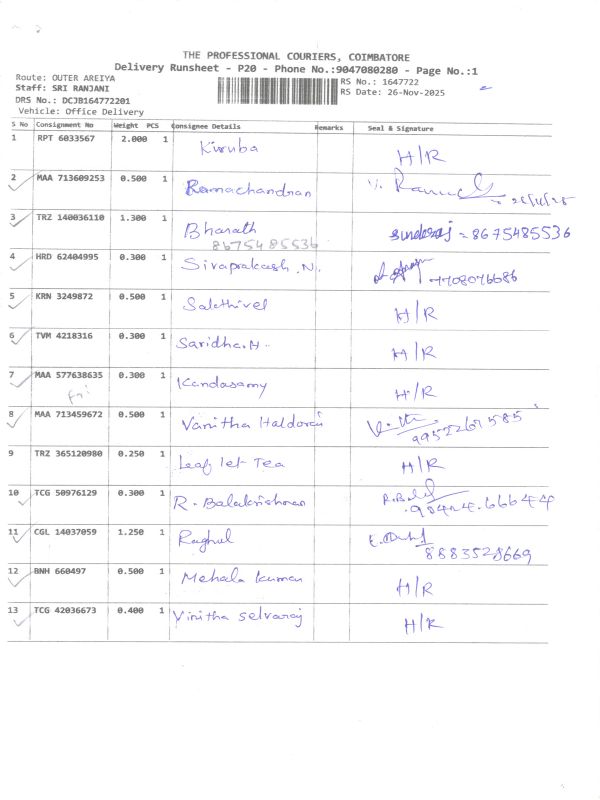 THE PROFESSIONAL COURIERS, COIMBATORE
Delivery Runsheet - P20 - Phone No.:9047080280 - Page No.:1
Route: OUTER AREIYA
Staff: SRI RANJANI
DRS No.: DCJB164772201
Vehicle: Office Delivery
RS No.: 1647722
RS Date: 26-Nov-2025
S No Consignment No Weight PCS Consignee Details Remarks Seal & Signature
1 RPT 6033567 2.000 1 Kiruba H/R
2 MAA 713609253 0.500 1 Ramachandran 26/11/25
3 TRZ 140036110 1.300 1 Bharath 8675485536 sunderaj = 8675485536
4 HRD 62404995 0.300 1 Sivaprakash.N. 7708076686
5 KRN 3249872 0.500 1 Sakthivel H/R
6 TVM 4218316 0.300 1 Saridha.H. H/R
7 MAA 577638635 0.300 1 Kandasamy H/R
Fri
8 MAA 713459672 0.500 1 Vanitha Haldorai 9952267585
9 TRZ 365120980 0.250 1 Leaf let Tea H/R
10 TCG 50976129 0.300 1 R. Balakrishnan
11 CGL 14037059 1.250 1 Raghul 8883528669
12 BNH 660497 0.500 1 Mehala kumar H/R
13 TCG 42036673 0.400 1 Vinitha selvaraj H/R